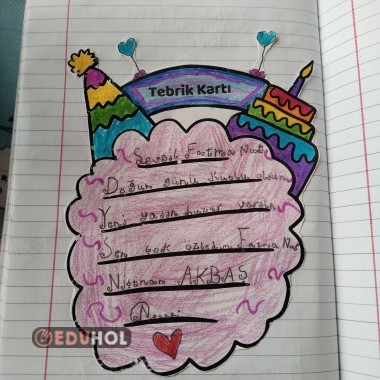 Tebrik Kartı
Sevgili Fatma Nur
Doğum günü kutlu olsun
Yeni yaşın huzur versin
Seni çok özledim Fatma Nur
AKBAŞ
EDUHOL